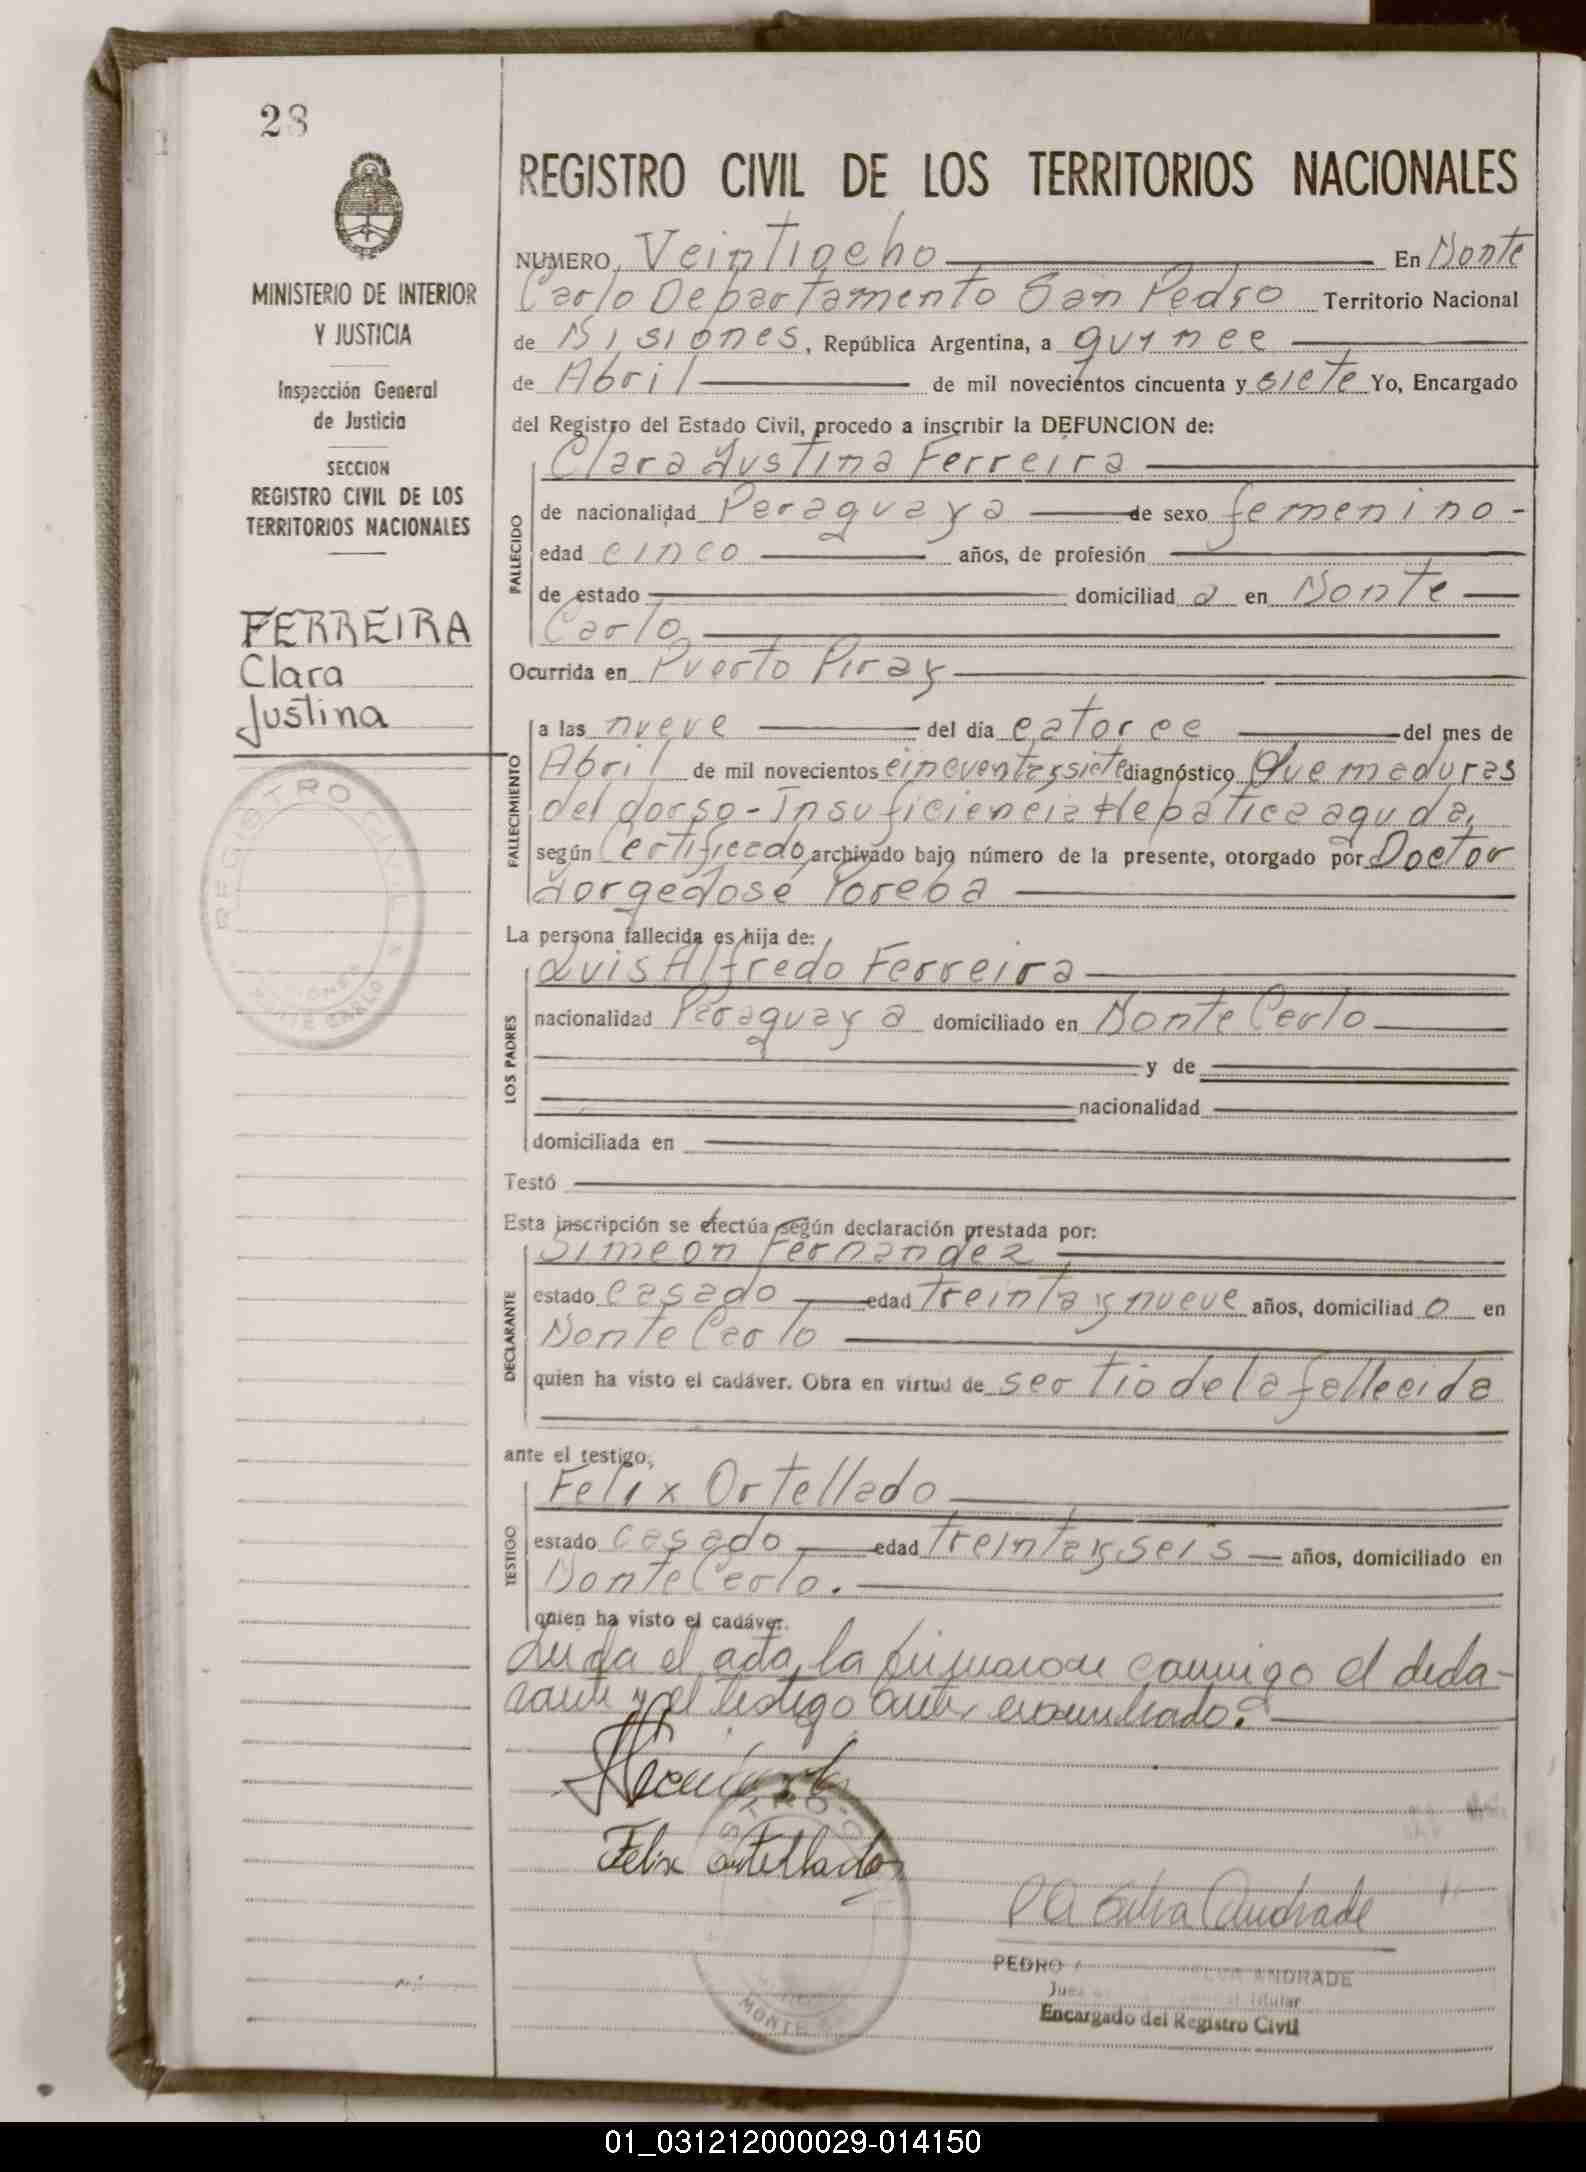 28
MINISTERIO DE INTERIOR
Y JUSTICIA
Inspección General
de Justicia
SECCION
REGISTRO CIVIL DE LOS
TERRITORIOS NACIONALES
FERREIRA
Clara
Justina
REGISTRO CIVIL
MONTE CARLO
REGISTRO CIVIL DE LOS TERRITORIOS NACIONALES
NUMERO Veintiocho En Monte
Carlo Departamento San Pedro Territorio Nacional
de Misiones, República Argentina, a quince
de Abril de mil novecientos cincuenta y siete Yo, Encargado
del Registro del Estado Civil, procedo a inscribir la DEFUNCION de:
FALLECIDO
Clara Justina Ferreira
de nacionalidad Paraguaya de sexo femenino -
edad cinco años, de profesión
de estado domiciliad a en Monte
Carlo
Ocurrida en Puerto Piray
FALLECIMIENTO
a las nueve del día catorce del mes de
Abril de mil novecientos cincuenta y siete diagnóstico Quemaduras
del dorso - Insuficiencia Hepática aguda,
según Certificado, archivado bajo número de la presente, otorgado por Doctor
Jorge José Poreba
La persona fallecida es hija de:
LOS PADRES
Luis Alfredo Ferreira
nacionalidad Paraguaya domiciliado en Monte Carlo
y de
nacionalidad
domiciliada en
Testó
Esta inscripción se efectúa según declaración prestada por:
DECLARANTE
Simeon Fernandez
estado casado edad treinta y nueve años, domiciliad o en
Monte Carlo
quien ha visto el cadáver. Obra en virtud de ser tio de la fallecida
ante el testigo,
TESTIGO
Felix Ortellado
estado casado edad treinta y seis años, domiciliado en
Monte Carlo.
quien ha visto el cadáver.
Leida el acta, la firmaron conmigo el decla-
rante y el testigo antes enunciado.
Felix Ortellado
MONTE
P A Silva Andrade
PEDRO SILVA ANDRADE
Juez Titular
Encargado del Registro Civil
01_031212000029-014150